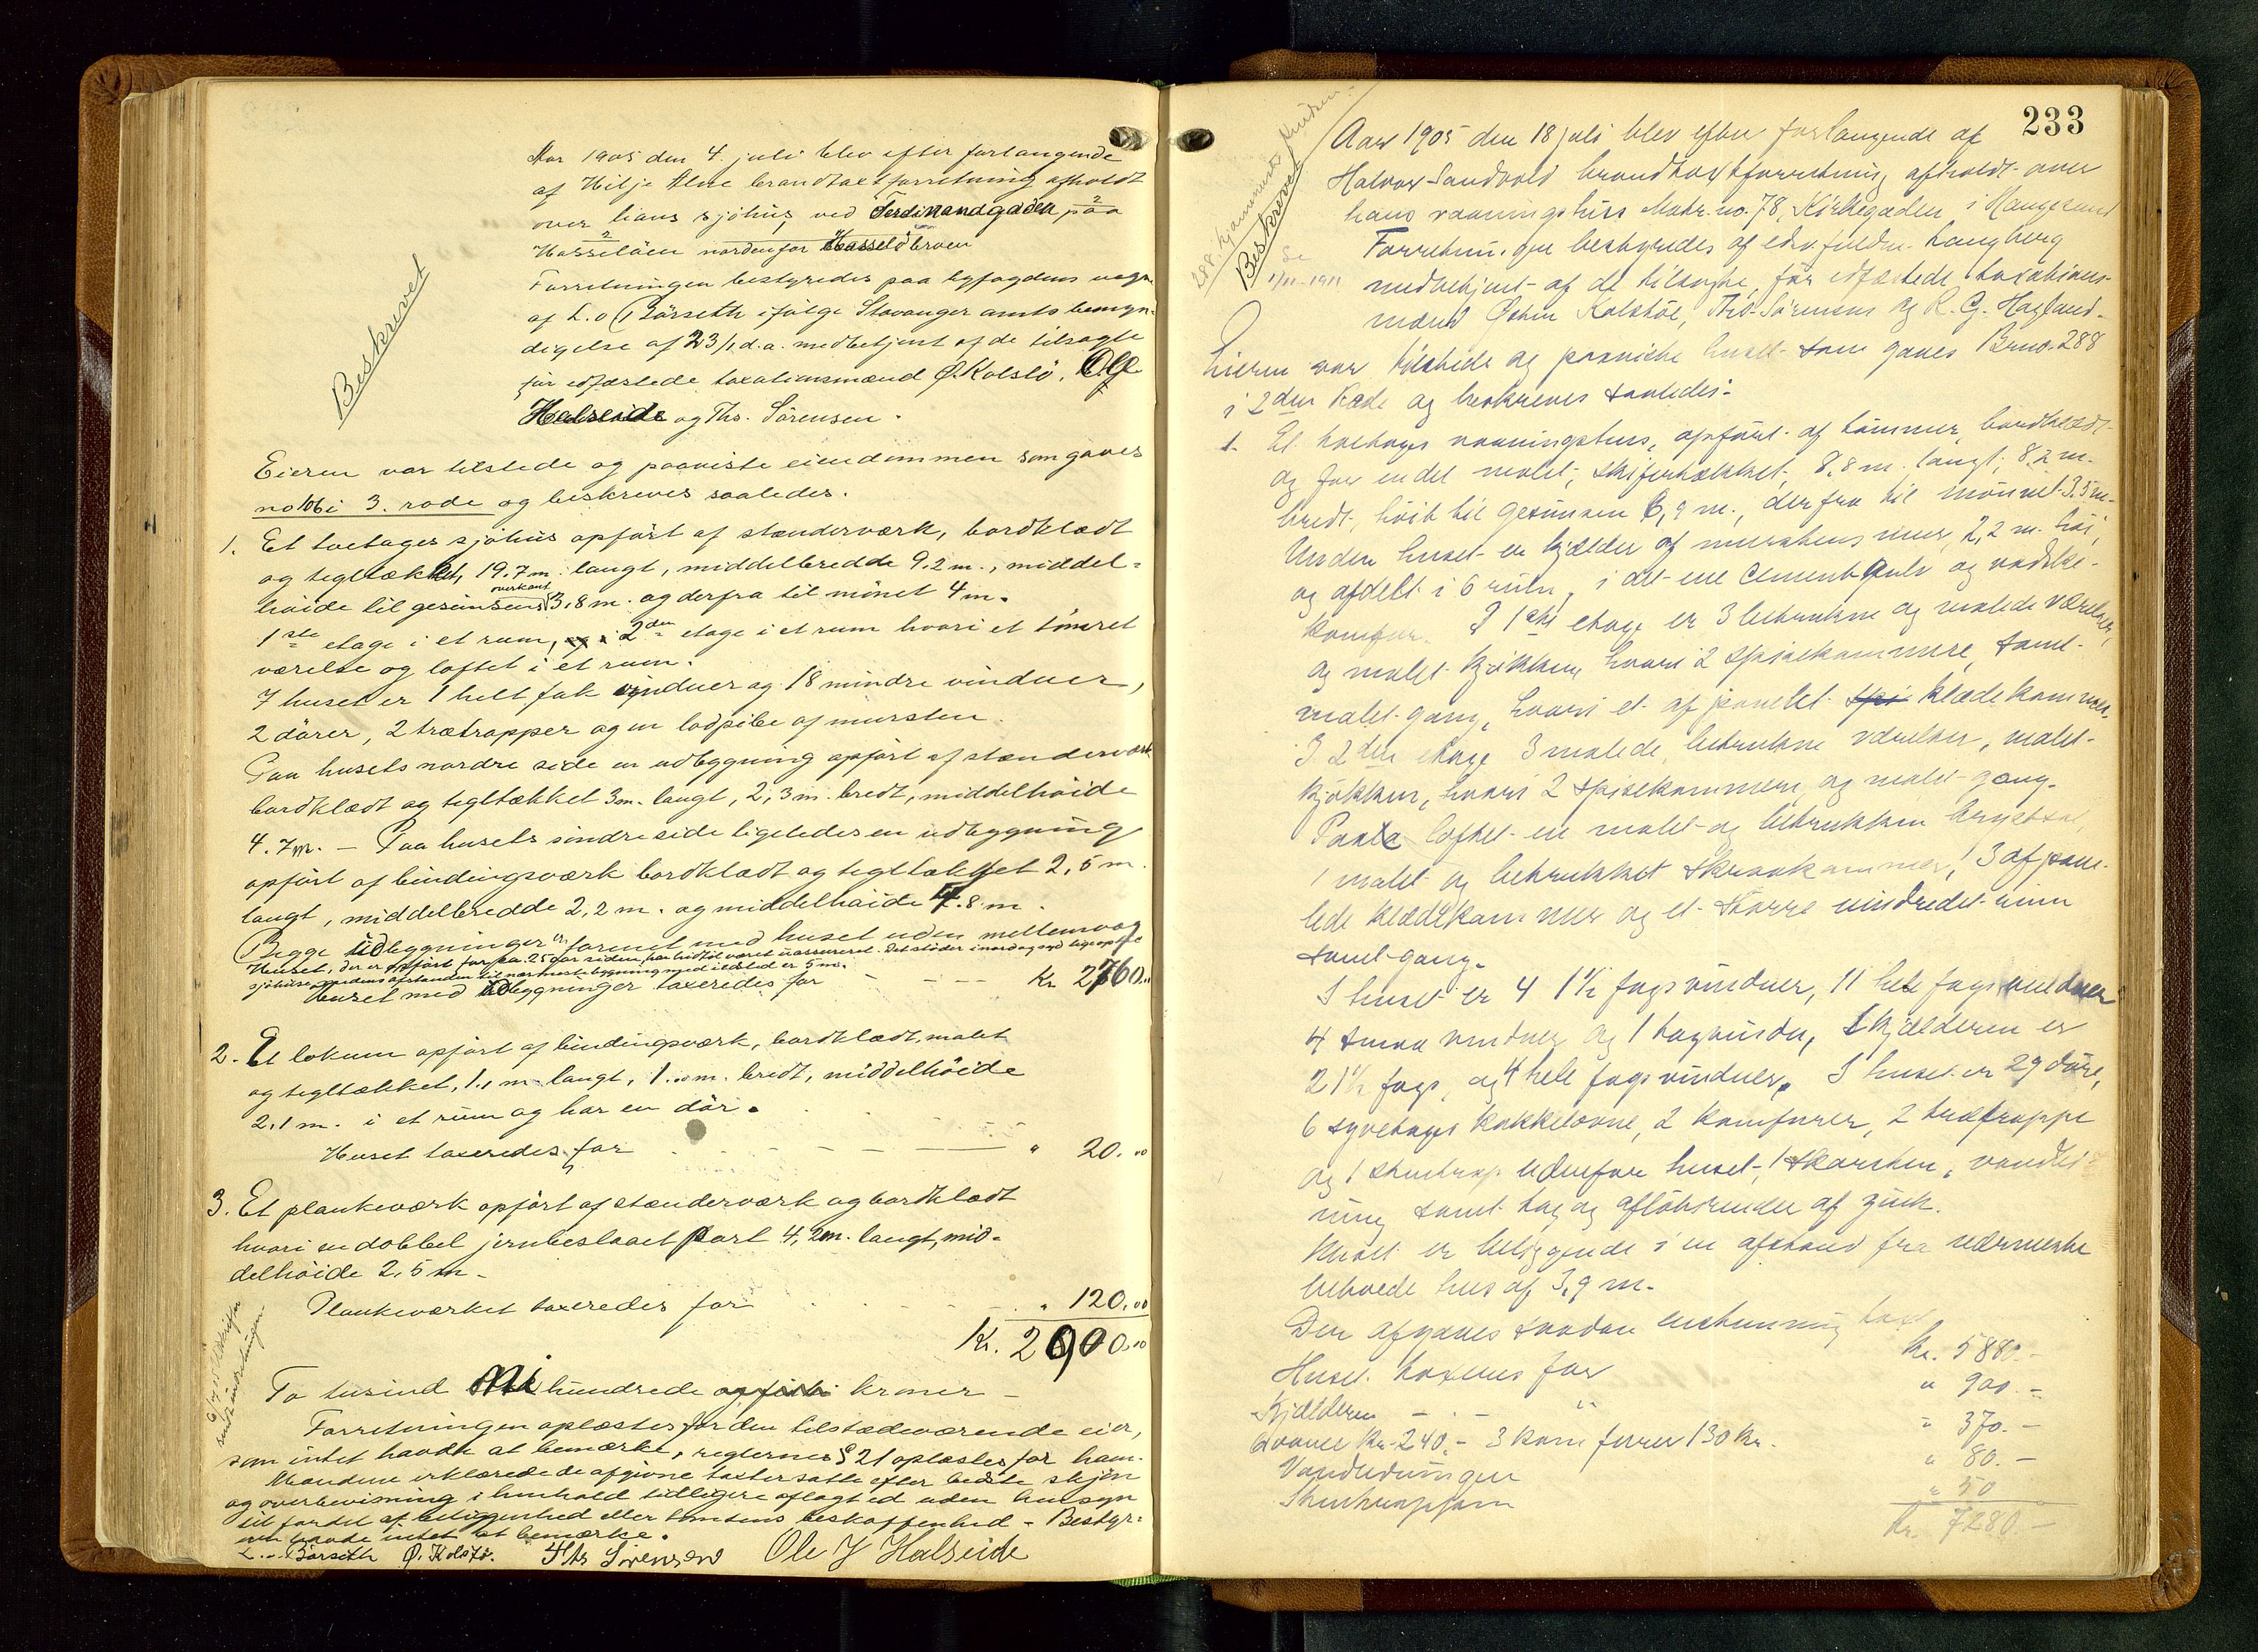 Aar 1905 den 4. juli blev efter forlangende
af Hilje Alne brandtaxtforretning afholdt
over hans sjöhus ved Ferdinandgaden paa
Hasselöen nordenfor Hasselöbroen
Forretningen bestyredes paa byfogdens vegne
af L. Börseth ifölge Stavanger amts bemyn-
digelse af 23/1 d.a. medbetjent af de tilsagte
før edfæstede taxationsmænd Ø. Kolstö, O. J.
Halseide og Ths. Sörensen.
Beskrevet
Eieren var tilstede og paaviste eiendommen som gaves
no 106 i 3. rode og beskreves saaledes.
1. Et toetages sjöhus opfört af stænderværk, bordklædt
og tegltækket, 19.7 m. langt, middelbredde 9.2 m., middel-
höide til gesimsens overkant 3,8 m. og derfra til mönet 4 m.
1ste etage i et rum, 2den etage i et rum hvori et tömret
værelse og loftet i et rum.
I huset er 1 helt fak vinduer og 18 mindre vinduer,
2 dörer, 2 trætrapper og en lodpibe af mursten.
Paa husets nordre side en udbygning opfört af stænderværk
bordklædt og tegltækket 3 m. langt, 2,3 m. bredt, middelhöide
4.7 m. — Paa husets söndre side ligeledes en udbygning
opfört af bindingsværk bordklædt og tegltækket 2,5 m.
langt, middelbredde 2,2 m. og middelhöide 4.8 m.
Begge udbygninger er forenet med huset uden mellemvæg
Huset, der er opfört for ca. 25 aar siden, har hidtil været uassureret. Det stöder i nord og syd lige op til
sjöhuse, medens afstanden til nærmeste bygning med ildsted er 5 m.
Huset med udbygninger taxeredes for — — — Kr. 2760.00
2. Et lokum opfört af bindingsværk, bordklædt, malet
og tegltækket, 1.1 m. langt, 1.00 m. bredt, middelhöide
2.1 m. i et rum og har en dör.
Huset taxeredes for — — — " 20.00
3. Et plankeværk opfört af stænderværk og bordklædt
hvori en dobbel jernbeslaaet port 4,2 m. langt, mid-
delhöide 2.5 m.
Plankeværket taxeredes for " 120.00
Kr. 2900.00
To tusind ni hundrede kroner —
Forretningen oplæstes for den tilstedeværende eier,
som intet havde at bemærke, reglernes § 21 oplæstes for ham.
Mændene erklærede de afgivne taxter satte efter bedste skjön
og overbevisning i henhold tidligere aflagt ed uden hensyn
til fordel af beliggenhed eller tomtens beskaffenhed - Bestyr-
eren havde intet at bemærke.
L. Börseth Ø. Kolstö. Ths Sörensen Ole J Halseide
233
Beskrevet
Aar 1905 den 18 juli blev efter forlangende af
Halvor Sandvold brandtaxtforretning afholdt over
hans vaaningshus Matr. no. 78, Kirkegaden i Haugesund
Forretningen bestyredes af edv. fuldm. Langberg
medbetjent af de tilsagte, för edfæstede taxations-
mænd Østen Kolstöe, Ths. Sörensen og K. G. Hagland.
Eieren var tilstede og paaviste huset som gaves Brno. 288
i 2den Rode og beskreves saaledes:
1. Et toetages vaaningshus, opført af tømmer, bordklædt
og for en del malet, skifertækket, 8,8 m. langt, 8,2 m.
bredt, höit til gesimsen 6,9 m., derfra til mönnet 3,5 m.
Under huset en kjælder af murstens mur, 2,2 m. höi,
og afdelt i 6 rum, i det ene Cementgulv og vadske-
komfur. I 1ste etage er 3 betrukne og malede værelser,
og malet kjökken, hvori 2 spisekammere, samt
malet gang, hvori et afpanelet klædekammer.
I 2den etage 3 malede, betrukne værelser, malet
kjökken, hvori 2 spisekammere, og malet gang.
Paa loftet en malet og betrukken kvistsal,
1 malet og betrukket skraakammer, 3 afpane-
lede klædekammer og et större uindredet rum
samt gang.
I huset er 4 1½ fags vinduer, 11 hele fags vinduer
4 smaa vinduer og 1 tagvindu, I kjælderen er
2 1½ fags, og 4 hele fags vinduer. I huset er 29 döre,
6 syvetages kakkelovne, 2 komfurer, 2 trætrappe
og 1 stentrap udenfor huset, 1 skorsten, vandled-
ning samt tag og aflöbsrender af zink.
Huset er beliggende i en afstand fra nærmeste
beboede hus af 3,9 m.
Der afgaves saadan enstemmig taxt
Huset taxeres for Kr. 5880.-
Kjælderen — " — " 900.-
6 ovner Kr. 240.- 3 komfurer 130 Kr. " 370.-
Vandledningen " 80.-
Stentrappen " 50
Kr. 7280.-